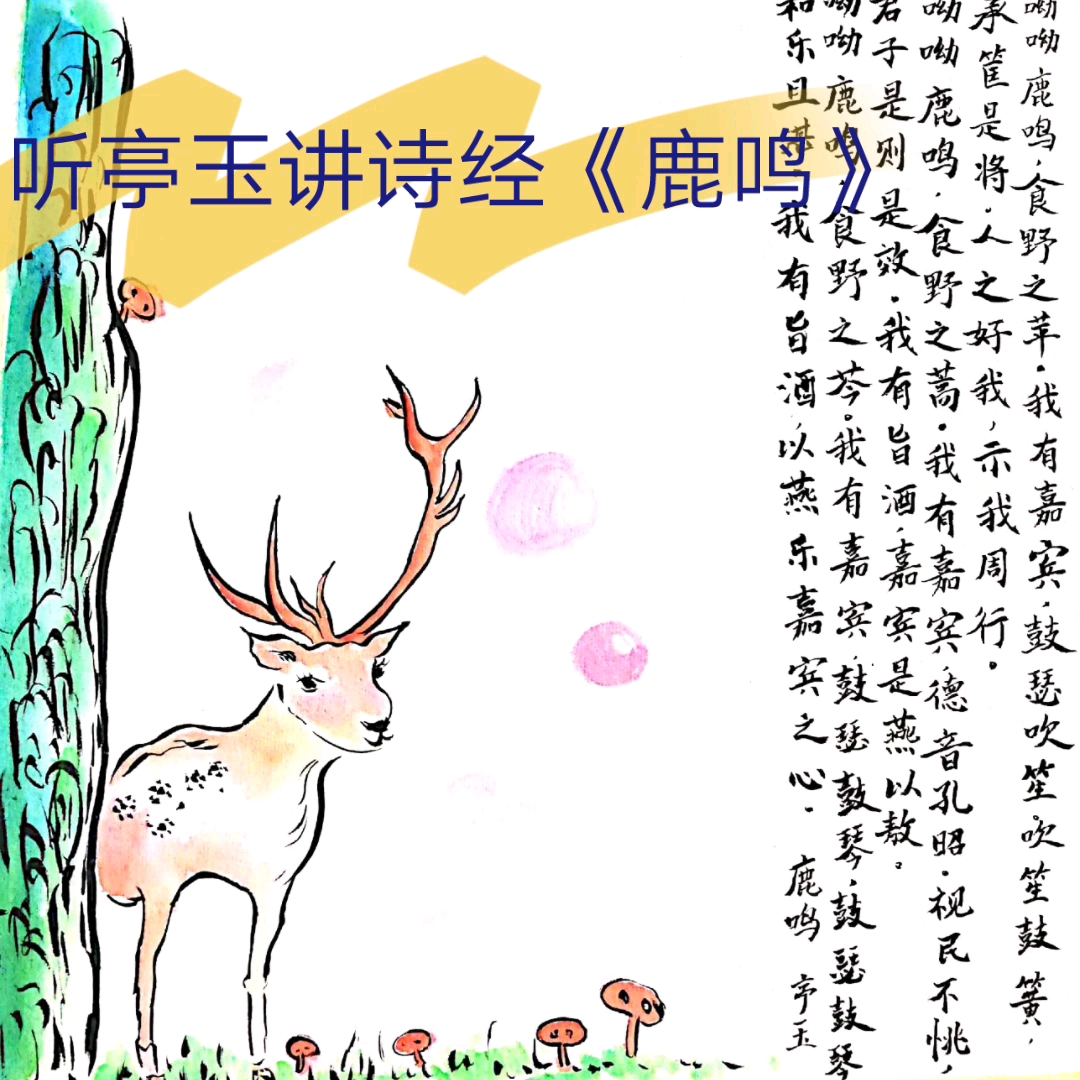 听亭玉讲诗经《鹿鸣》
呦呦鹿鸣，食野之苹。我有嘉宾，鼓瑟吹笙。吹笙鼓簧，
承筐是将。人之好我，示我周行。
呦呦鹿鸣，食野之蒿。我有嘉宾，德音孔昭。视民不恌，
君子是则是效。我有旨酒，嘉宾是燕以敖。
呦呦鹿鸣，食野之芩。我有嘉宾，鼓瑟鼓琴，鼓瑟鼓琴
和乐且湛，我有旨酒，以燕乐嘉宾之心。 鹿鸣 亭玉